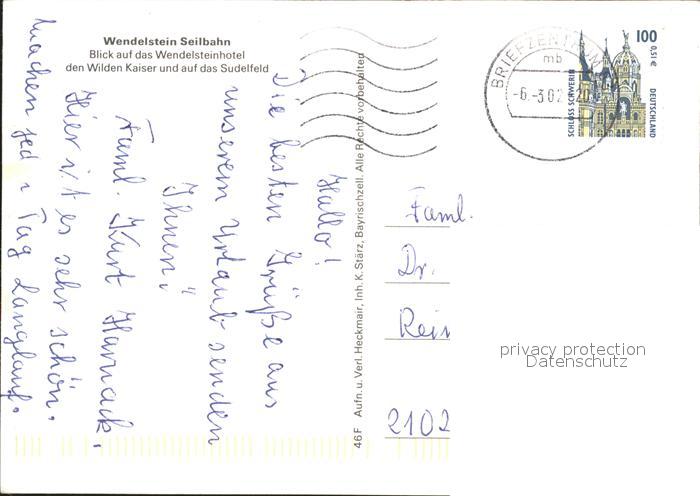 Wendelstein Seilbahn
Blick auf das Wendelsteinhotel
den Wilden Kaiser und auf das Sudelfeld
Hallo!
Die besten Grüße aus
unserem Urlaub senden
Ihnen
Faml. Kurt Harnack.
Hier ist es sehr schön.
Machen jed. Tag Langlauf.
46F Aufn. u. Verl. Heckmair, Inh. K. Stärz, Bayrischzell. Alle Rechte vorbehalten
BRIEFZENTRUM
mb
-6.-3.02
20
100
0,51 €
SCHLOSS SCHWERIN
DEUTSCHLAND
Faml.
Dr.
Rein
2102
privacy protection
Datenschutz